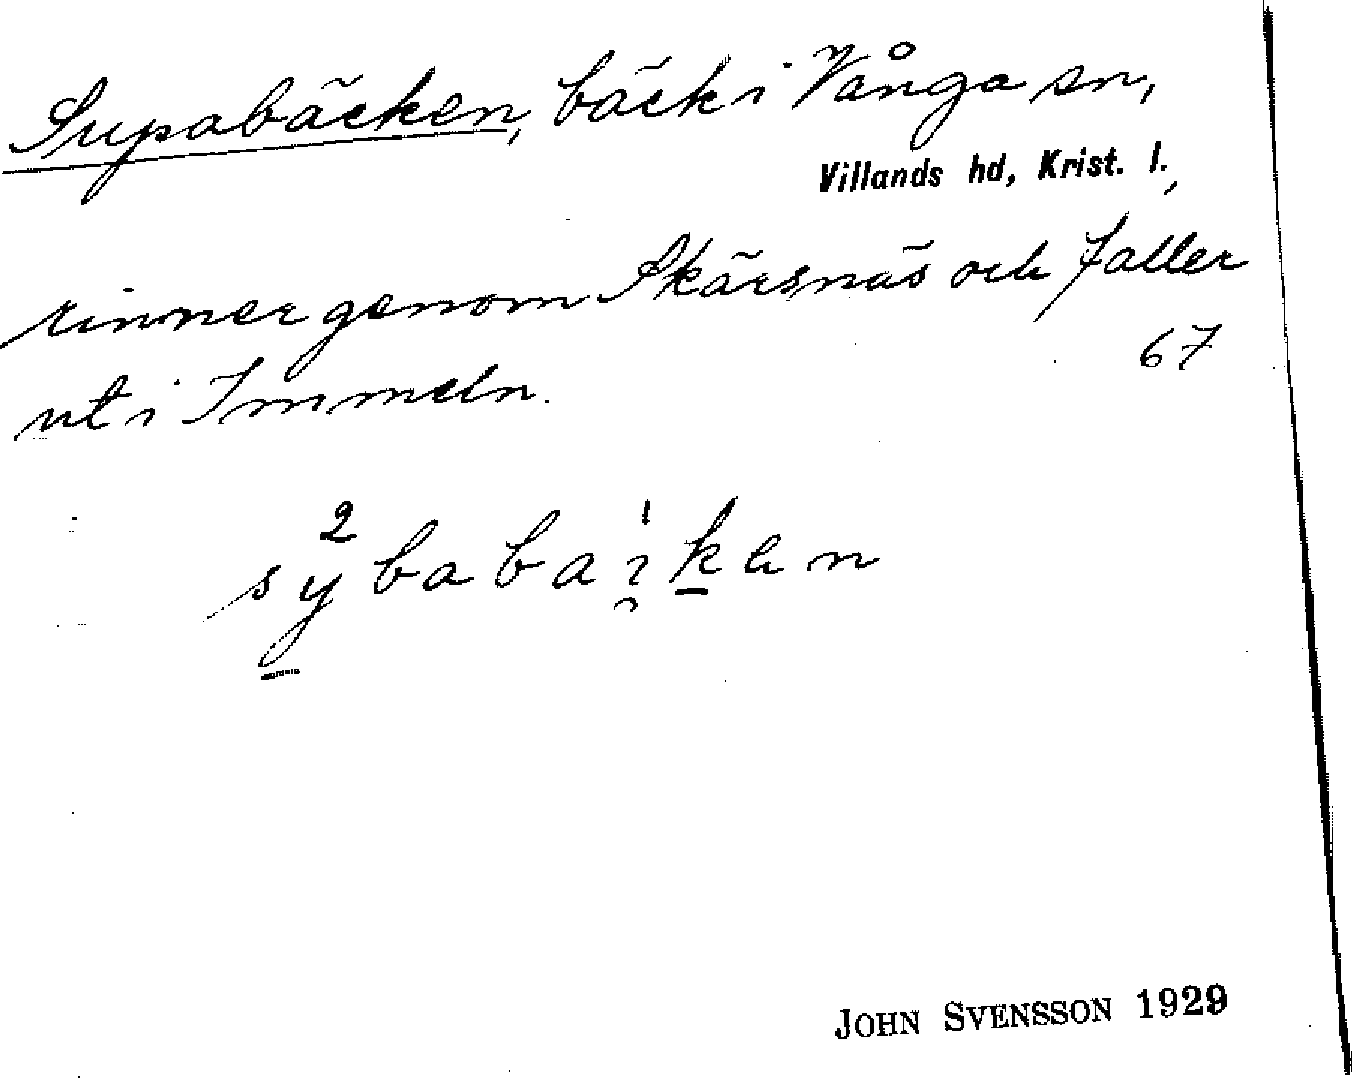 Supabäcken, bäck i Vånga sn,
Villands hd, Krist. l.,
rinner genom Skärsnäs och faller
ut i Immeln.
67
sybabaiken
JOHN SVENSSON 1929